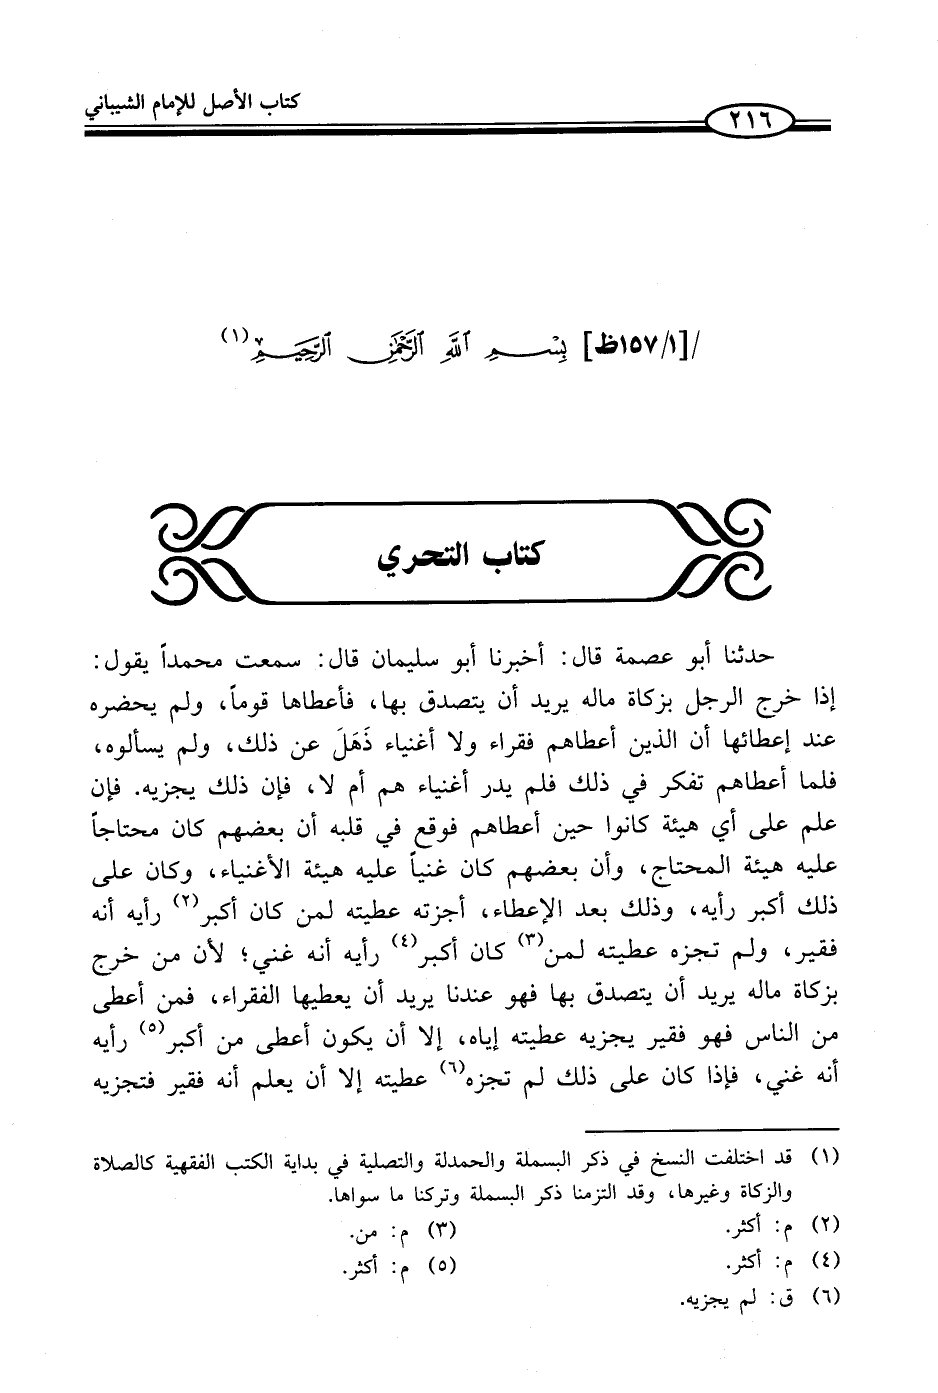 كتاب الأصل للإمام الشيباني
٢١٦
/[١/١٥٧ظ] بِسْمِ اللَّهِ الرَّحْمَٰنِ الرَّحِيمِ(١)
كتاب التحري
حدثنا أبو عصمة قال: أخبرنا أبو سليمان قال: سمعت محمداً يقول:
إذا خرج الرجل بزكاة ماله يريد أن يتصدق بها، فأعطاها قوماً، ولم يحضره
عند إعطائها أن الذين أعطاهم فقراء ولا أغنياء ذَهَلَ عن ذلك، ولم يسألوه،
فلما أعطاهم تفكر في ذلك فلم يدر أغنياء هم أم لا، فإن ذلك يجزيه. فإن
علم على أي هيئة كانوا حين أعطاهم فوقع في قلبه أن بعضهم كان محتاجاً
عليه هيئة المحتاج، وأن بعضهم كان غنياً عليه هيئة الأغنياء، وكان على
ذلك أكبر رأيه، وذلك بعد الإعطاء، أجزته عطيته لمن كان أكبر(٢) رأيه أنه
فقير، ولم تجزه عطيته لمن(٣) كان أكبر(٤) رأيه أنه غني؛ لأن من خرج
بزكاة ماله يريد أن يتصدق بها فهو عندنا يريد أن يعطيها الفقراء، فمن أعطى
من الناس فهو فقير يجزيه عطيته إياه، إلا أن يكون أعطى من أكبر(٥) رأيه
أنه غني، فإذا كان على ذلك لم تجزه(٦) عطيته إلا أن يعلم أنه فقير فتجزيه
(١) قد اختلفت النسخ في ذكر البسملة والحمدلة والتصلية في بداية الكتب الفقهية كالصلاة
والزكاة وغيرها، وقد التزمنا ذكر البسملة وتركنا ما سواها.
(٢) م: أكثر.
(٣) م: من.
(٤) م: أكثر.
(٥) م: أكثر.
(٦) ق: لم يجزيه.